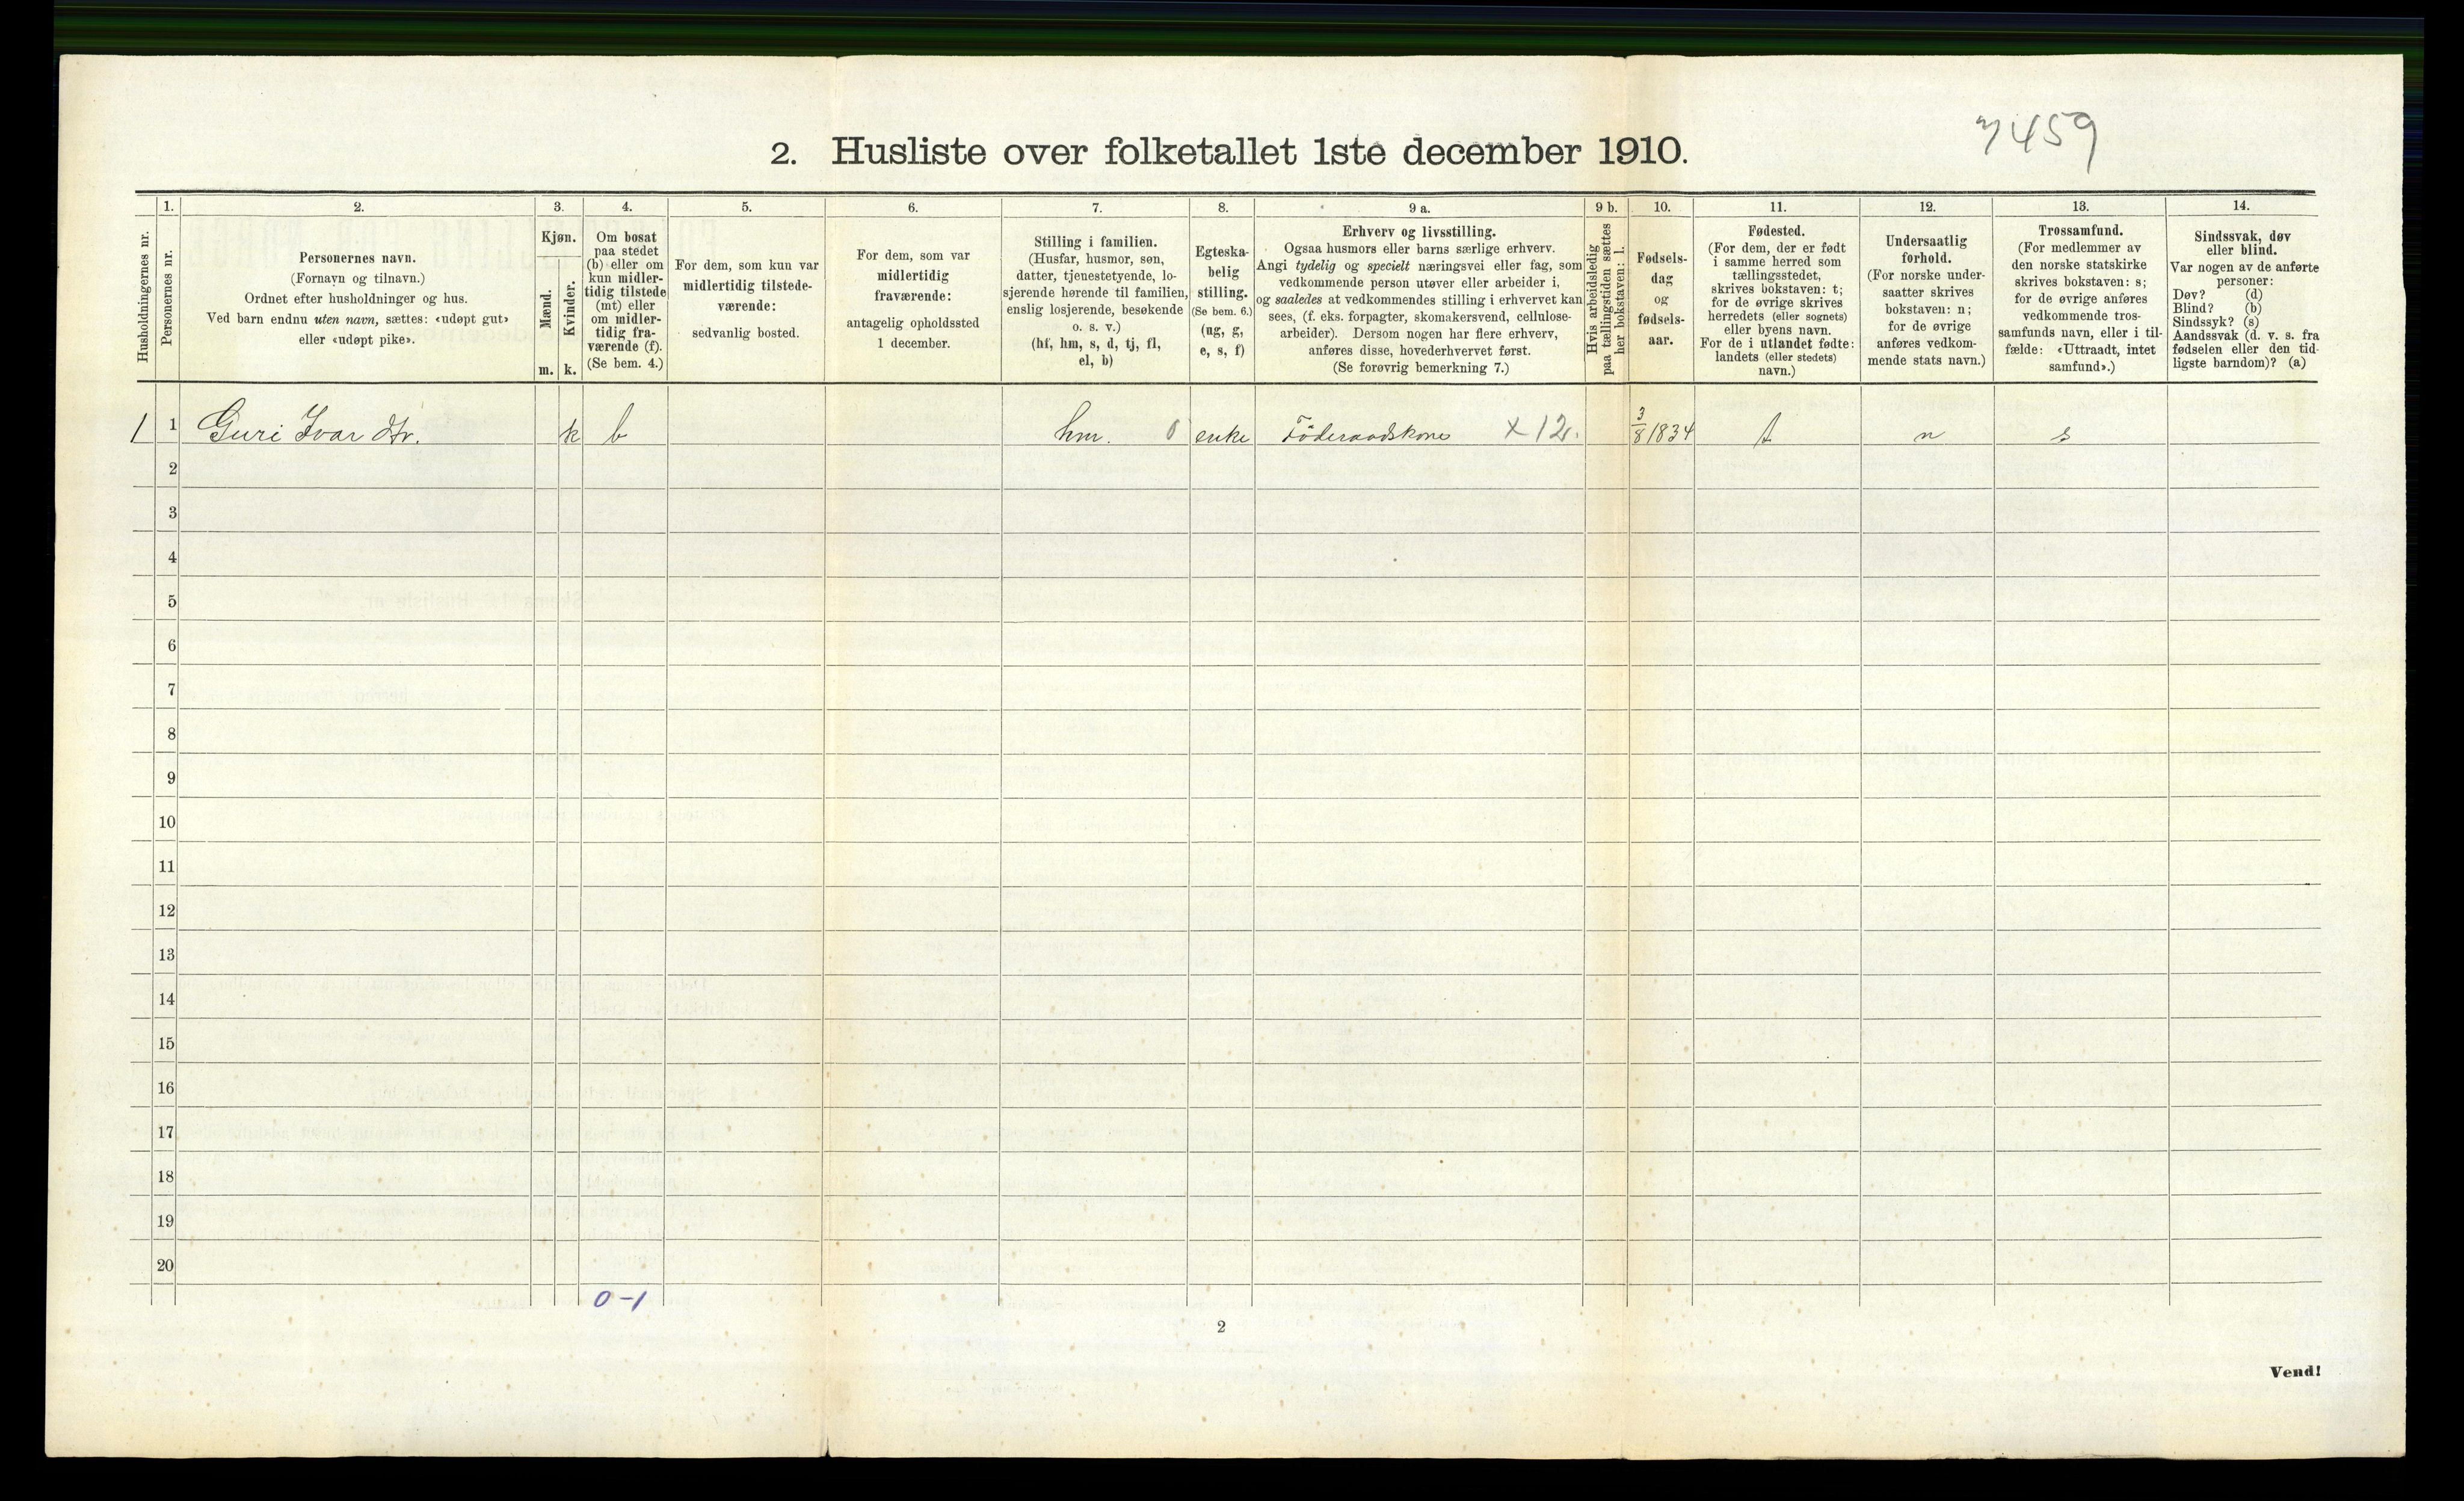 7459
2. Husliste over folketallet 1ste december 1910.
Husholdningernes nr.
1.
Personernes nr.
2.
Personernes navn.
(Fornavn og tilnavn.)
Ordnet efter husholdninger og hus.
Ved barn endnu uten navn, sættes: «udøpt gut»
eller «udøpt pike».
3.
Kjøn.
Mænd.
Kvinder.
m. k.
4.
Om bosat
paa stedet
(b) eller om
kun midler-
tidig tilstede
(mt) eller
om midler-
tidig fra-
værende (f).
(Se bem. 4.)
5.
For dem, som kun var
midlertidig tilstede-
værende:
sedvanlig bosted.
6.
For dem, som var
midlertidig
fraværende:
antagelig opholdssted
1 december.
7.
Stilling i familien.
(Husfar, husmor, søn,
datter, tjenestetyende, lo-
sjerende hørende til familien,
enslig losjerende, besøkende
o. s. v.)
(hf, hm, s, d, tj, fl,
el, b)
8.
Egteska-
belig
stilling.
(Se bem. 6.)
(ug, g,
e, s, f)
9 a.
Erhverv og livsstilling.
Ogsaa husmors eller barns særlige erhverv.
Angi tydelig og specielt næringsvei eller fag, som
vedkommende person utøver eller arbeider i,
og saaledes at vedkommendes stilling i erhvervet kan
sees, (f. eks. forpagter, skomakersvend, cellulose-
arbeider). Dersom nogen har flere erhverv,
anføres disse, hovederhvervet først.
(Se forøvrig bemerkning 7.)
9 b.
Hvis arbeidsledig
paa tællingstiden sættes
her bokstaven: l.
10.
Fødsels-
dag
og
fødsels-
aar.
11.
Fødested.
(For dem, der er født
i samme herred som
tællingsstedet,
skrives bokstaven: t;
for de øvrige skrives
herredets (eller sognets)
eller byens navn.
For de i utlandet fødte:
landets (eller stedets)
navn.)
12.
Undersaatlig
forhold.
(For norske under-
saatter skrives
bokstaven: n;
for de øvrige
anføres vedkom-
mende stats navn.)
13.
Trossamfund.
(For medlemmer av
den norske statskirke
skrives bokstaven: s;
for de øvrige anføres
vedkommende tros-
samfunds navn, eller i til-
fælde: «Uttraadt, intet
samfund».)
14.
Sindssvak, døv
eller blind.
Var nogen av de anførte
personer:
Døv? (d)
Blind? (b)
Sindssyk? (s)
Aandssvak (d. v. s. fra
fødselen eller den tid-
ligste barndom)? (a)
1 1 Guri Ivar dtr. k b hm. 0 enke Föderaadskone X 12. 3/8 1834 t n s
2
3
4
5
6
7
8
9
10
11
12
13
14
15
16
17
18
19
20
0-1
2
Vend!